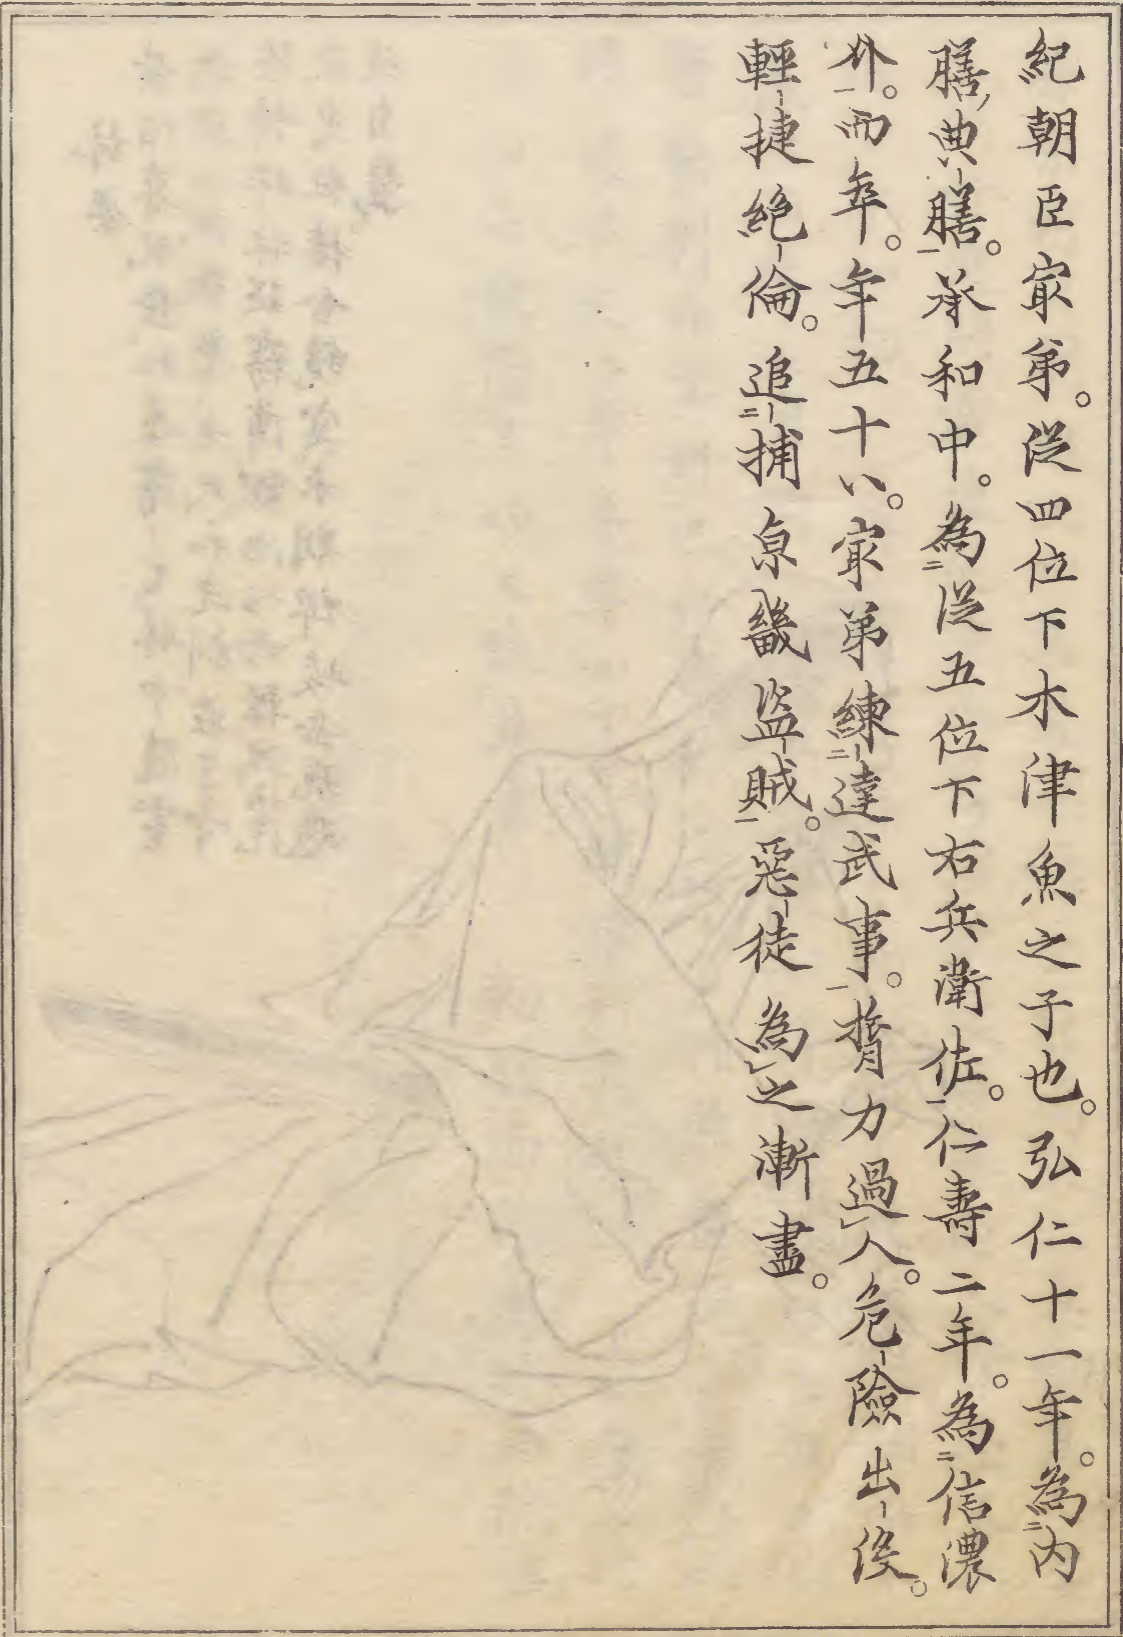 紀朝臣㝡弟。従四位下木津魚之子也。弘仁十一年。為内
膳典膳。承和中。為従五位下右兵衛佐。仁壽二年。為信濃
介。而卒。年五十八。㝡弟練達武事。膂力過人。危險出没。
輕捷絶倫。追捕京畿盗賊。惡徒為之漸盡。